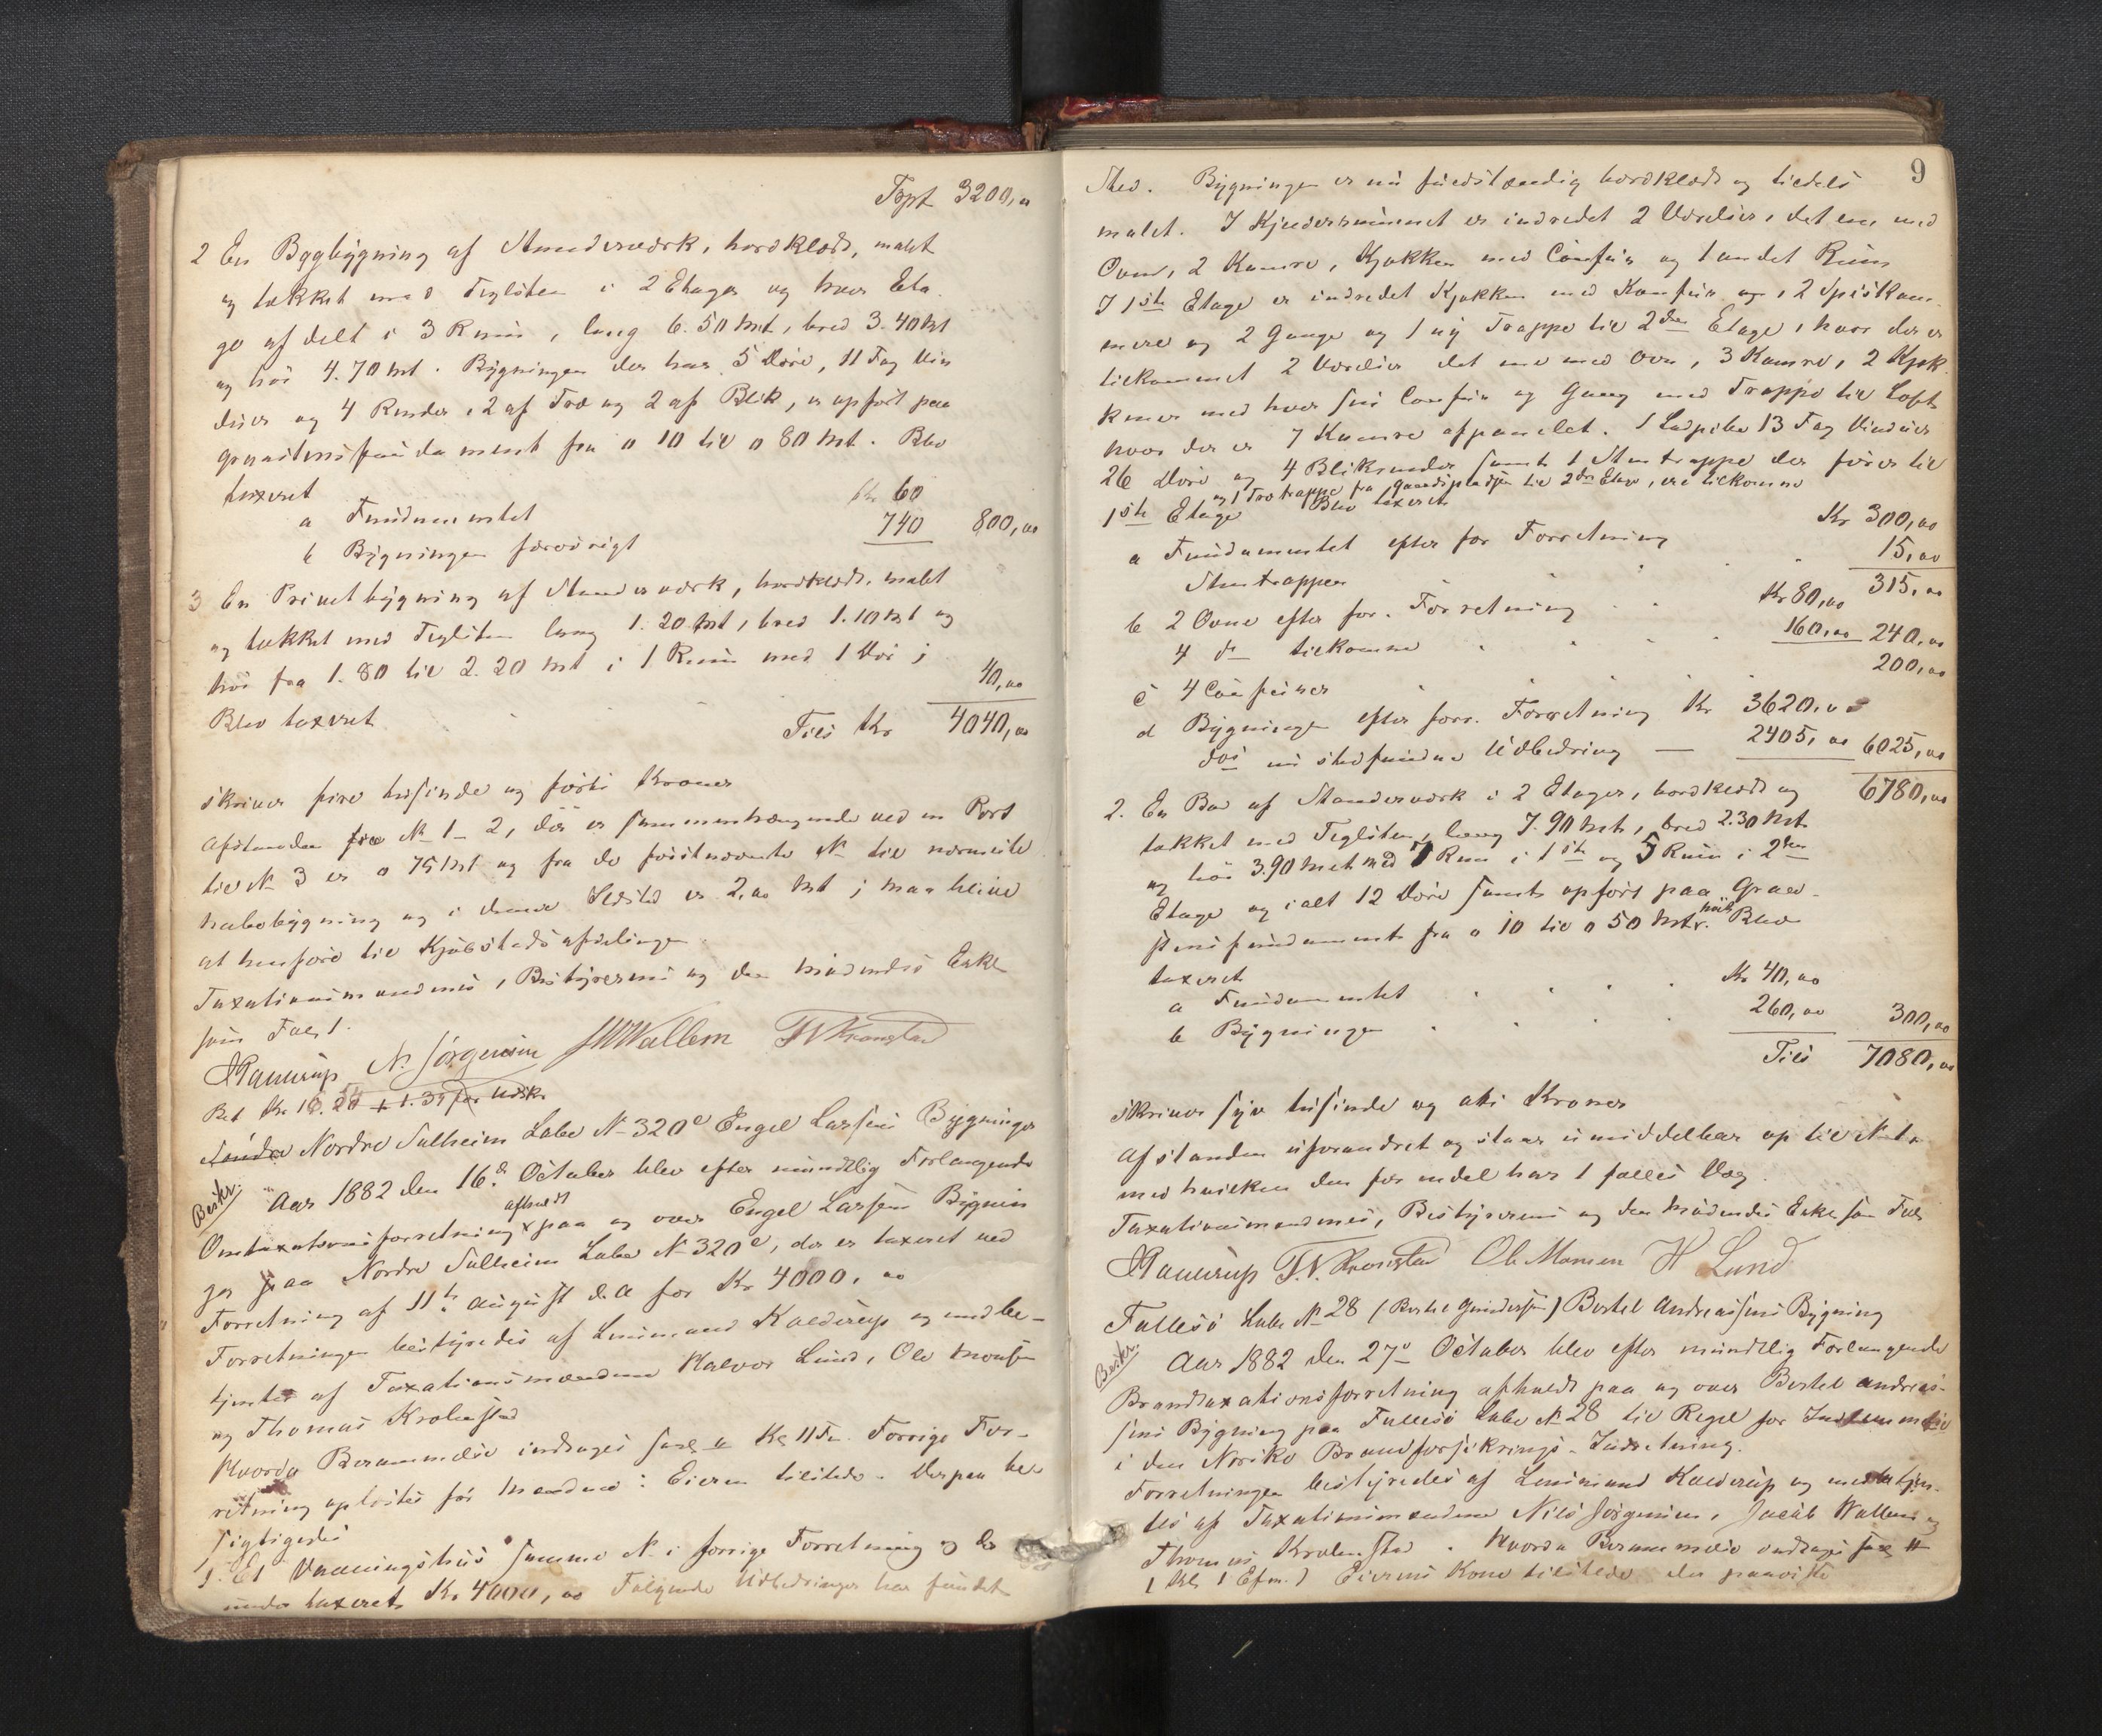 Trpt 3200,00
2 En Bagbygning af Stenderværk, bordklædt, malet
og tækket med Teglsten i 2 Etager og hver Eta-
ge afdelt i 3 Rum, lang 6.50 Mt, bred 3.40 Mt
og høi 4.70 Mt. Bygningen der har 5 Døre, 11 Fag Vin
duer og 4 Render, 2 af Træ og 2 af Blik, er opført paa
graastensfundament fra 0 10 til 0 80 Mt. Blev
taxeret
a Fundamentet Kr 60
b Bygningen forøvrigt 740 800,00
3 En Privetbygning af Stenderværk, bordklædt, malet
og tækket med Teglsten lang 1.20 Mt, bred 1.10 Mt og
høi fra 1.80 til 2.20 Mt i 1 Rum med 1 Dør;
Blev taxeret 40,00
Tils Kr 4040,00
skriver fire tusinde og førti Kroner
Afstanden fra No 1 - 2, der er sammenhængende ved en Port
til No 3 er 0 75 Mt og fra de førstnævnte No til nærmeste
nabobygning og i denne Udstrd er 2,00 Mt; maa blive
at henføre til Kjøbstadsafdelingen.
Taxationsmændenes, Bestyrerens og den mødendes Enke
som Fol 1.
Kaurup N. Jørgensen JW Wallem T N Kronstad
Bet Kr 16.20 + 1.35 for Udskr
Søndre Nordre Sulheim Løbe No 320e Engel Larsens Bygninger
Beskr.
Aar 1882 den 16de October blev efter mundtlig Forlangende
afholdt
Omtaxationsforretning x paa og over Engel Larsens Bygnin
ger paa Nordre Sulheim Løbe No 320e, der er taxeret ved
Forretning af 11te August d.A for Kr 4000,00
Forretningen bestyredes af Lensmand Kalderup og medbe-
tjentes af Taxationsmændene Halvor Lund, Ole Monsen
og Thomas Krohnstad
Hvorda Berammelse indtages saal. a Kl 11 Fm. Forrige For-
retning oplæstes for Mændene: Eieren tilstede. Derpaa be-
sigtigedes
1. Et Vaaningshus samme No i forrige Forretning og der
under taxeret Kr 4000,00 Følgende Udbedringer har fundet
9
Sted. Bygningen er nu fuldstændig bordklædt og tildels
malet. I Kjelderrummet er indredet 2 Værelser, det ene med
Ovn, 2 Kamre, Kjøkken med Comfur og 1 andet Rum
I 1ste Etage er indredet Kjøkken med Komfur og 2 Spiskam-
mere og 2 Gange og 1 ny Trappe til 2den Etage, hvor der er
tilkommet 2 Værelser det ene med Ovn, 3 Kamre, 2 Kjøk-
kener med hver sin Comfur og Gang med Trappe til Loft
hvor der er 7 Kamre afpanelet. 1 Ludpibe 13 Fag Vinduer
26 Døre og 4 Blikrender samt 1 Stentrappe der fører til
og 1 Trætrappe fra gaardspladsen til 2den Etage, ere tilkomne
1ste Etage Blev taxeret
a Fundamentet efter for Forretning Kr 300,00
Stentrappen 15,00
315,00
b 2 Ovne efter for. Forretning Kr 80,00
4 do tilkomne 160,00 240,00
c 4 Comfurer 200,00
d Bygningen efter forr. Forretning Kr 3620,00
dos nu stedfundne Udbedring 2405,00 6025,00
6780,00
2. En Bod af Stenderværk i 2 Etager, bordklædt og
tækket med Teglsten, lang 7.90 Mt, bred 2.30 Mt
og høi 3.90 Met med 7 Rum i 1ste og 5 Rum i 2den
Etage og ialt 12 Døre samt opført paa Graa-
stensfundament fra 0 10 til 0 50 Mtr. høit Blev
taxeret
a Fundamentet Kr 40,00
b Bygningen 260,00 300,00
Tils 7080,00
skriver syv tusinde og otti Kroner
Afstanden uforandret og staar umiddelbar op til No 1
med hvilken den for endel har 1 fælles Væg.
Taxationsmændenes, Bestyrerens og den mødendes Enke som Fol
Kaurup T.N. Kronstad Ole Monsen H Lund
Fullesø Løbe No 28 (Bertel Gundersen) Bertel Andreassens Bygning
Beskr.
Aar 1882 den 27de October blev efter mundtlig Forlangende
Brandtaxationsforretning afholdt paa og over Bertel Andreas-
sens Bygning paa Fullesø Løbe No 28 til Regel for Indlemmelse
i den Norske Brandforsikrings-Indretning.
Forretningen bestyredes af Lensmand Kalderup og medbetjen-
tes af Taxationsmændene Niels Jørgensen, Jacob Wallem og
Thomas Krohnstad. Hvorda Berammelse indtages saal
(Kl 1 Efm.) Eierens Kone tilstede der paaviste